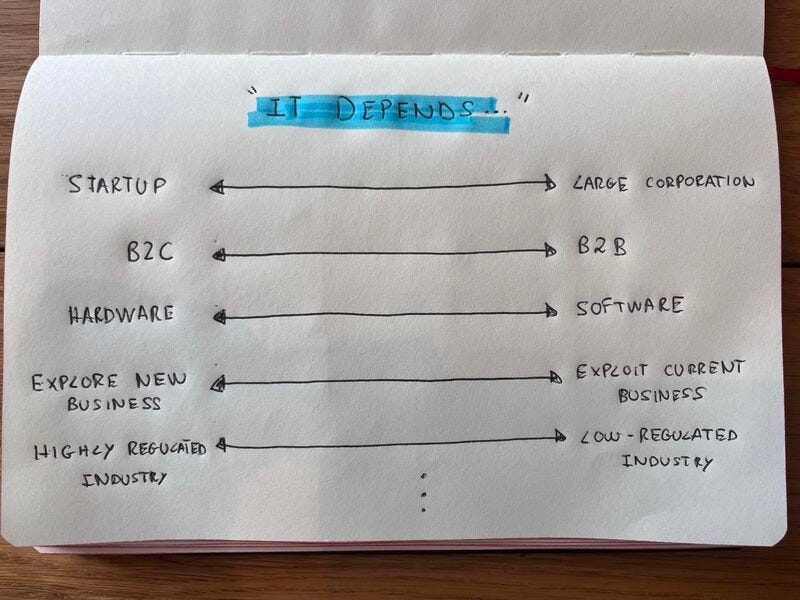 "IT DEPENDS..."
STARTUP LARGE CORPORATION
B2C B2B
HARDWARE SOFTWARE
EXPLORE NEW EXPLOIT CURRENT
BUSINESS BUSINESS
HIGHLY REGULATED LOW-REGULATED
INDUSTRY INDUSTRY